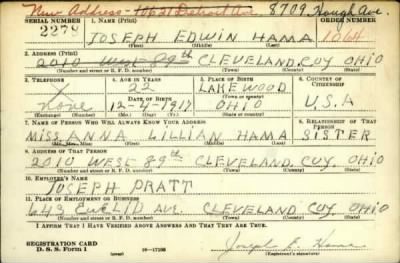 New Address- 10621 Detroit Ave. 8709 Hough Ave.
SERIAL NUMBER 1. NAME (Print) ORDER NUMBER
2278 JOSEPH EDWIN HAMA 1064
(First) (Middle) (Last)
2. ADDRESS (Print)
2010 WEST 89th CLEVELAND, CUY OHIO
(Number and street or R. F. D. number) (Town) (County) (State)
3. TELEPHONE 4. AGE IN YEARS 5. PLACE OF BIRTH 6. COUNTRY OF CITIZENSHIP
X 22 LAKEWOOD
none DATE OF BIRTH (Town or county)
12-4-1917 OHIO U.S.A
(Exchange) (No.) (Mo.) (Day) (Yr.) (State or country)
7. NAME OF PERSON WHO WILL ALWAYS KNOW YOUR ADDRESS 8. RELATIONSHIP OF THAT PERSON
MISS. ANNA LILLIAN HAMA SISTER
(Mr., Mrs., Miss) (First) (Middle) (Last)
9. ADDRESS OF THAT PERSON
2010 WEST 89th CLEVELAND, CUY, OHIO
(Number and street or R. F. D. number) (Town) (County) (State)
10. EMPLOYER'S NAME
JOSEPH PRATT
11. PLACE OF EMPLOYMENT OR BUSINESS
643 EUCLID AVE. CLEVELAND CUY. OHIO
(Number and street or R. F. D. number) (Town) (County) (State)
I AFFIRM THAT I HAVE VERIFIED ABOVE ANSWERS AND THAT THEY ARE TRUE.
REGISTRATION CARD
D. S. S. Form 1 16-17105 Joseph E. Hama
(Registrant's signature)